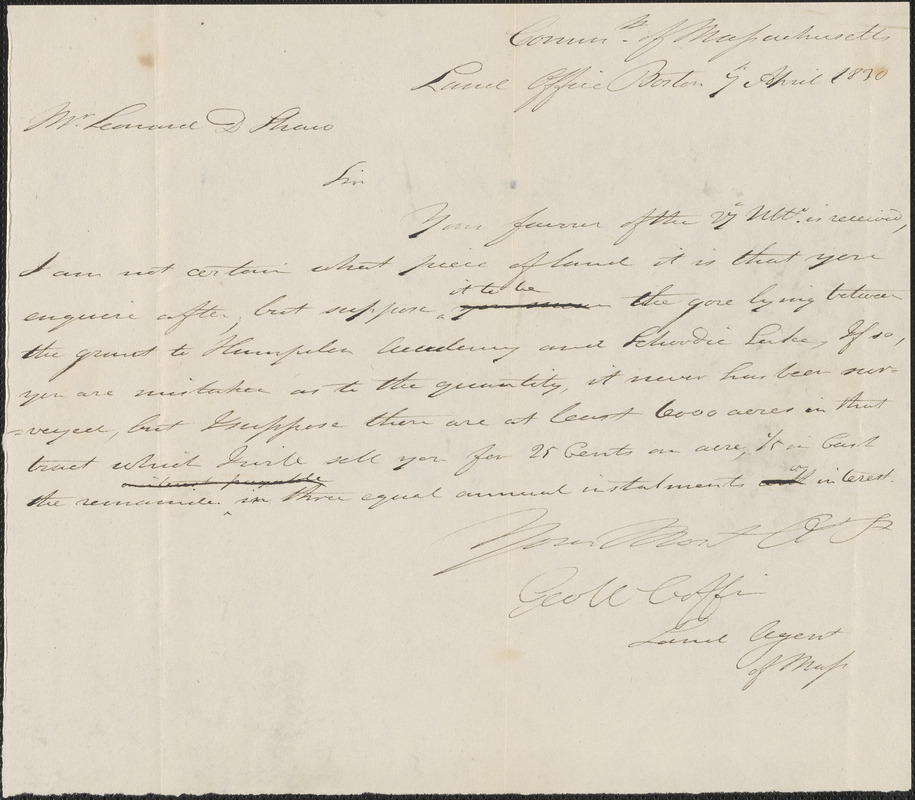 Commth. of Massachusetts
Land Office Boston 7 April 1830
Mr. Leonard D Shaw
Sir
Your favour of the 27 Ulto. is received,
I am not certain what piece of land it is that you
enquire after, but suppose it to be the gore lying between
the grant to Hampden Academy and Schoodic Lake, If so,
you are mistaken as to the quantity, it never has been sur-
=veyed, but I suppose there are at least 6000 acres in that
tract which I will sell you for 25 Cents an acre, 1/5 in Cash
the remainder in three equal annual instalments with interest.
Your Most Ob Sr
Geo W Coffin
Land Agent
of Mass